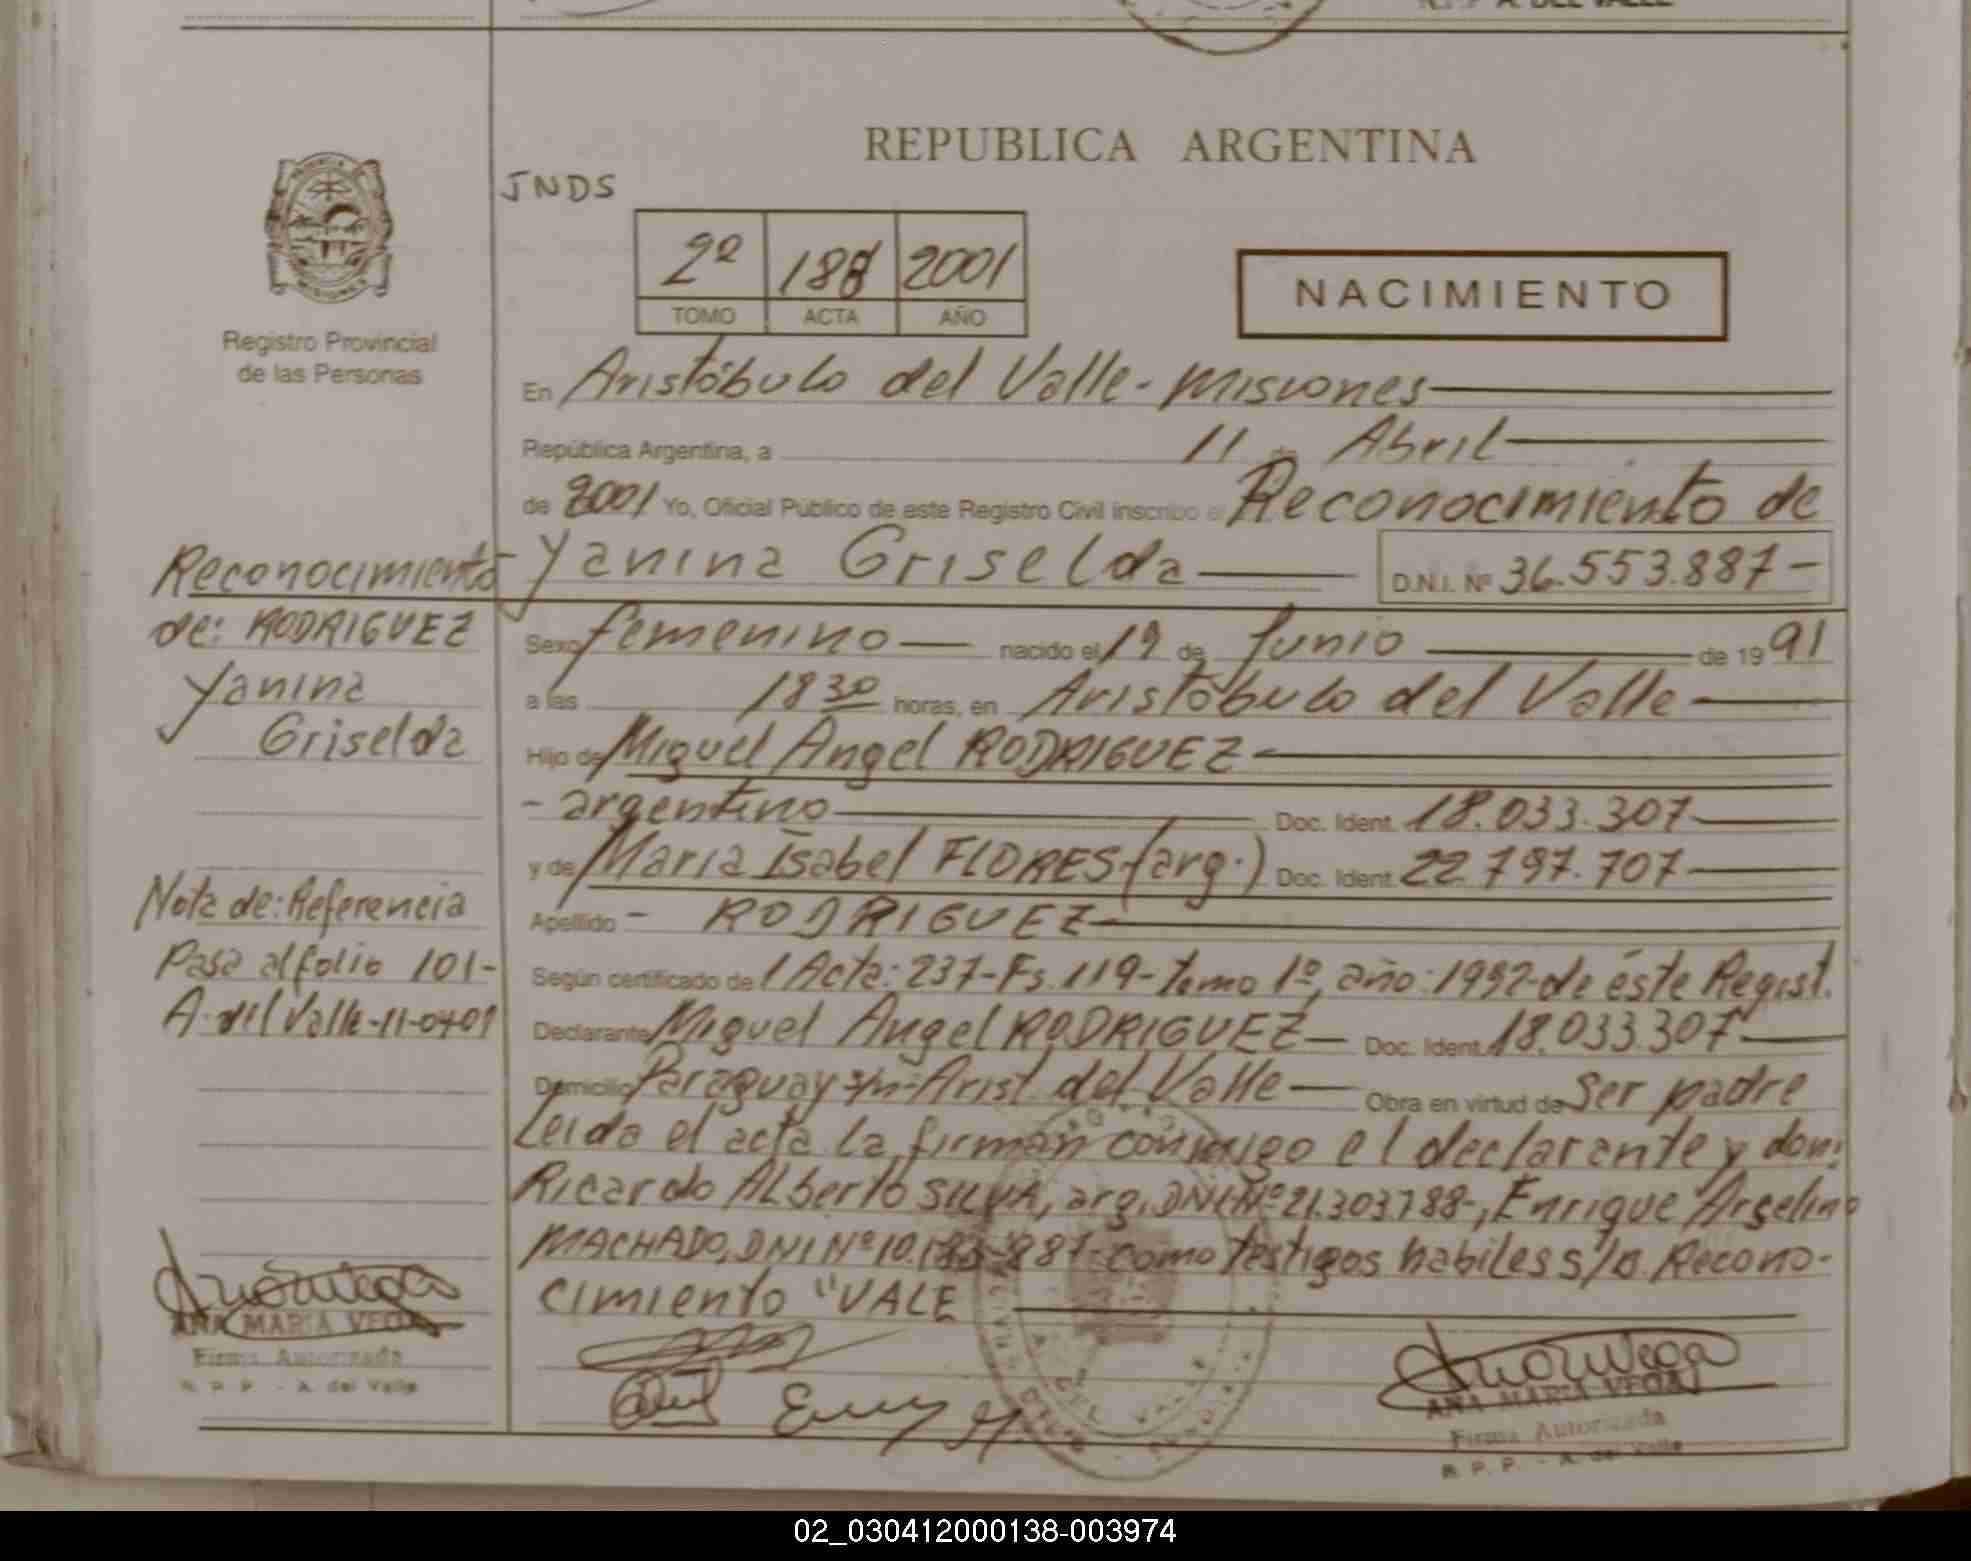 A. DEL VALLE
REPUBLICA ARGENTINA
JNDS
2º 188 2001
TOMO ACTA AÑO
NACIMIENTO
PROVINCIA DE
MISIONES
Registro Provincial
de las Personas
En Aristóbulo del Valle - Misiones
República Argentina, a 11 - Abril
de 2001 Yo, Oficial Público de este Registro Civil inscribo el Reconocimiento de
Yanina Griselda D.N.I. Nº 36.553.887-
Sexo femenino nacido el 19 de Junio de 1991
a las 18 30 horas, en Aristóbulo del Valle
Hijo de Miguel Angel RODRIGUEZ
- argentino Doc. Ident. 18.033.307
y de Maria Isabel FLORES (arg.) Doc. Ident. 22.797.707
Apellido - RODRIGUEZ
Según certificado de 1 Acta: 237-Fs. 119-tomo 1º, año: 1992-de éste Regist.
Declarante Miguel Angel RODRIGUEZ Doc. Ident. 18.033.307
Domicilio Paraguay s/n-Arist. del Valle Obra en virtud de Ser padre
Leida el acta la firman conmigo el declarante y don:
Ricardo Alberto SILVA, arg. DNI Nº 21.303.788-, Enrique Arselino
MACHADO, DNI Nº 10. 887 como testigos habiles s/b. Recono-
cimiento "VALE
ANA MARIA VEGA
Firma Autorizada
R. P. P. - A. del Valle
Reconocimiento
de: RODRIGUEZ
Yanina
Griselda
Nota de: Referencia
Pasa al folio 101-
A. del Valle-11-04-01
ANA MARIA VEGA
Firma Autorizada
R. P. P. - A. del Valle
02_030412000138-003974